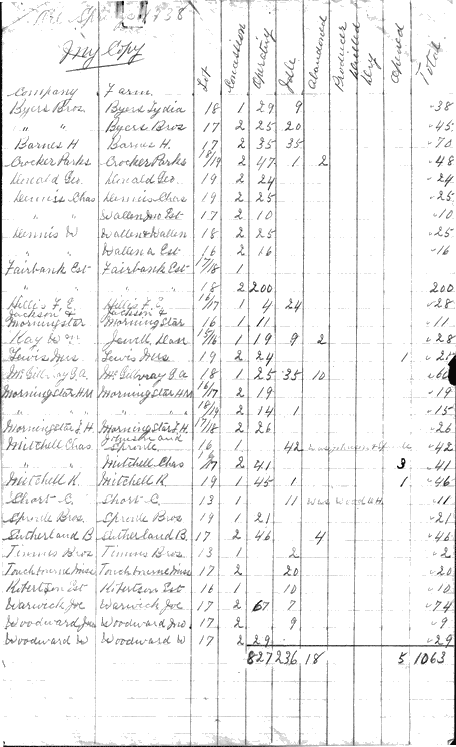 1938
My Copy
Company Farm Lot Concession Operating Idle Abandoned Producer Drilled Dry Opened Total
Byers Bros Byers Lydia 18 1 29 9 38
" " Byers Bros 17 2 25 20 45
Barnes H Barnes H. 17 2 35 35 70
Crocker Parks Crocker Parks 18/19 2 47 1 2 48
Donald Geo. Donald Geo. 19 2 24 24
Dennis Chas Dennis Chas 19 2 25 25
" " Wallen Jno Est 17 2 10 10
Dennis W Wallen & Wallen 18 2 25 25
Wallen A Est 16 2 16 16
Fairbank Est Fairbank Est 17/18 1
" " 18 2 200 200
Hillis F. E. Hillis F. E. 16/17 1 4 24 28
Jackson & Jackson &
Morningstar Morningstar 16 1 11 11
Kay Wm Jewell, Dean 15/16 1 19 9 2 28
Lewis Mrs Lewis Mrs 19 2 24 1
McGillvray G.A. McGillvray G.A. 18 1 25 35 10
Morningstar H M Morningstar H M 16/17 2 19 19
" " " " 18/19 2 14 1 15
Morningstar J. H. Morningstar J. H. 17/18 2 26 26
Johnson and
Mitchell Chas Sproule 16 1 42 42
" " Mitchell Chas 2 41 3 41
Mitchell R Mitchell R. 19 1 45 1 1 46
Short C. Short C. 13 1 11 was Wood W.H. 11
Sproule Bros. Sproule Bros. 19 1 21 21
Sutherland B. Sutherland B. 17 2 46 4 46
Timms Bros Timms Bros. 13 1 2 2
17 2 20 20
Robertson Est Robertson Est 16 1 10 10
Warwick Joe Warwick Joe 17 2 67 7 74
Woodward Jno Woodward Jno. 17 2 9 9
Woodward W Woodward W 17 2 29 29
827 236 18 5 1063